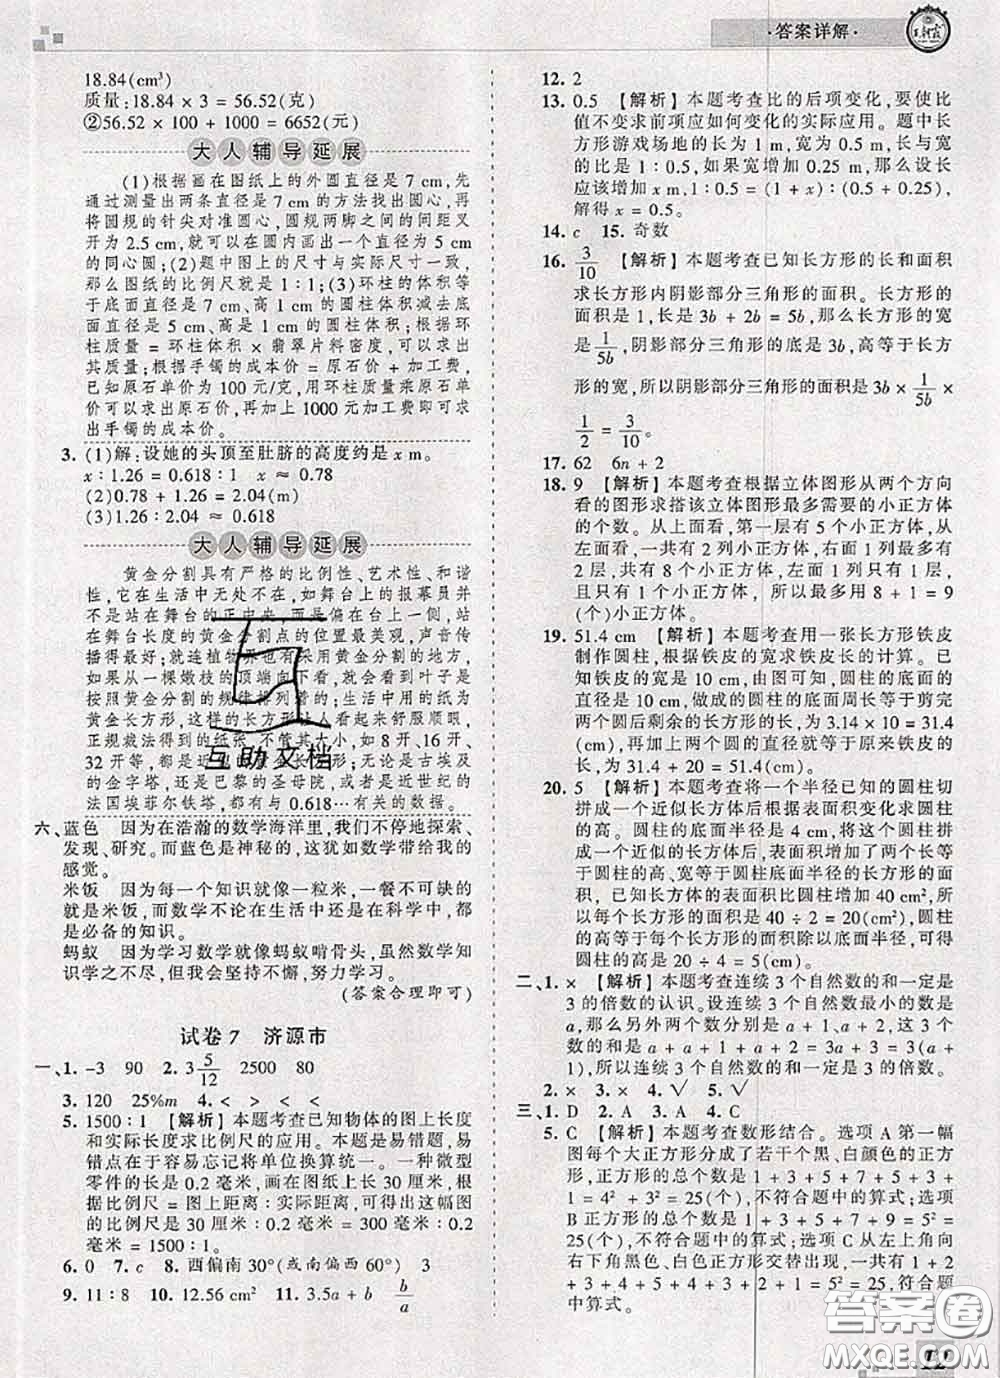 ·答案详解·
18.84(cm³)
质量:18.84 × 3 = 56.52(克)
②56.52 × 100 + 1000 = 6652(元)
大人辅导延展
(1)根据画在图纸上的外圆直径是 7 cm,先
通过测量出两条直径是 7 cm 的方法找出圆心,再
将圆规的针尖对准圆心,圆规两脚之间的间距叉
开为 2.5 cm,就可以在圆内画出一个直径为 5 cm
的同心圆;(2)题中图上的尺寸与实际尺寸一致,
那么图纸的比例尺就是 1∶1;(3)环柱的体积等
于底面直径是 7 cm、高 1 cm 的圆柱体积减去底
面直径是 5 cm、高是 1 cm 的圆柱体积;根据环
柱质量 = 环柱体积 × 翡翠片料密度,求出环柱质
量;根据手镯的成本价 = 原石价 + 加工费,
已知原石单价为 100 元/克,用环柱质量乘原石单
价可以求出原石价,再加上 1000 元加工费即可求
出手镯的成本价。
3. (1)解:设她的头顶至肚脐的高度约是 x m。
x∶1.26 = 0.618∶1 x ≈ 0.78
(2)0.78 + 1.26 = 2.04(m)
(3)1.26∶2.04 ≈ 0.618
大人辅导延展
黄金分割具有严格的比例性、艺术性、和谐
性,它在生活中无处不在,如舞台上的报幕员并
不是站在舞台的正中央,而是偏在台上一侧,以
站在舞台长度的黄金分割点的位置最美观,声音传
播得最好;就连植物界也有采用黄金分割的地方,
如果从一棵嫩枝的顶端向下看,就会看到叶子是
按照黄金分割的规律排列着的;生活中用的纸为
黄金长方形,这样的长方形让人看起来舒服顺眼,
正规裁法得到的纸张,不管其大小,如 8 开、16 开、
32 开等,都仍然是近似的黄金长方形;无论是古埃及
的金字塔,还是巴黎的圣母院,或者是近世纪的
法国埃菲尔铁塔,都有与 0.618… 有关的数据。
六、蓝色 因为在浩瀚的数学海洋里,我们不停地探索、
发现、研究。而蓝色是神秘的,这犹如数学带给我的
感觉。
米饭 因为每一个知识就像一粒米,一餐不可缺的
就是米饭,而数学不论在生活中还是在科学中,都
是必备的知识。
蚂蚁 因为学习数学就像蚂蚁啃骨头,虽然数学知
识学之不尽,但我会坚持不懈,努力学习。
(答案合理即可)
试卷 7 济源市
一、1. -3 90 2. 3 5/12 2500 80
3. 120 25%m 4. < > < <
5. 1500∶1 【解析】本题考查已知物体的图上长度
和实际长度求比例尺的应用。本题是易错题,易
错点在于容易忘记将单位换算统一。一种微型
零件的长是 0.2 毫米,画在图纸上的长是 30 厘
米,根据比例尺 = 图上距离∶实际距离,可知图纸
的比例尺是 30 厘米∶0.2 毫米 = 300 毫米∶0.2
毫米 = 1500∶1。
6. 0 7. c 8. 西偏南 30°(或南偏西 60°) 3
9. 11∶8 10. 12.56 cm² 11. 3.5a + b b/a
12. 2
13. 0.5 【解析】本题考查比的后项变化,要使比
值不变求前项应如何变化的实际应用。题中长
方形游戏场地的长为 1 m,宽为 0.5 m,长与宽
的比为 1∶0.5,如果宽增加 0.25 m,那么设长
应该增加 x m,1∶0.5 = (1 + x)∶(0.5 + 0.25),
解得 x = 0.5。
14. c 15. 奇数
16. 3/10 【解析】本题考查已知长方形的长和面积
求长方形内阴影部分三角形的面积。长方形的
面积是 1,长是 3b + 2b = 5b,那么长方形的宽
是 1/5b,阴影部分三角形的底是 3b,高等于长方
形的宽,所以阴影部分三角形的面积是 3b × 1/5b ×
1/2 = 3/10。
17. 62 6n + 2
18. 9 【解析】本题考查根据立体图形从两个方向
看的图形求搭该立体图形最多需要的小正方体
的个数。从上面看,第一层有 5 个小正方体,从
左面看,一共有 2 列小正方体,右面 1 列最多有
2 层,共有 8 个小正方体,左面 1 列最多有 1 层,
并且只有 1 个小正方体,所以最多用 8 + 1 = 9
(个)小正方体。
19. 51.4 cm 【解析】本题考查用一张长方形铁皮
制作圆柱,根据铁皮的宽求铁皮长的计算。已
知铁皮的宽是 10 cm,由图可知,圆柱的底面的
直径是 10 cm,做成的圆柱的底面周长等于剪完
两个圆后剩余的长方形的长,为 3.14 × 10 = 31.4
(cm),再加上两个圆的直径就等于原来铁皮的
长,为 31.4 + 20 = 51.4(cm)。
20. 5 【解析】本题考查将一个半径已知的圆柱切
拼成一个近似长方体后根据表面积变化求圆柱
的高。圆柱的底面半径是 4 cm,将这个圆柱切
成一个近似的长方体后,表面积增加了两个长等于
圆柱的高、宽等于圆柱的底面半径的长方形的面
积。已知长方体的表面积比圆柱增加 40 cm²,则
一个长方形的面积是 40 ÷ 2 = 20(cm²),圆柱
的高等于一个长方形的面积除以底面半径,可得
圆柱的高是 20 ÷ 4 = 5(cm)。
二、1. × 【解析】本题考查连续 3 个自然数的和一定是
3 的倍数的认识。设连续 3 个自然数最小的数是
a,那么另外两个数分别是 a + 1、a + 2,这三个数
的和是 a + a + 1 + a + 2 = 3a + 3 = 3(a + 1),
所以连续 3 个自然数的和一定是 3 的倍数。
2. × 3. × 4. √ 5. √
三、1. D 2. A 3. A 4. D
5. C 【解析】本题考查数形结合。选项 A 第一幅
图每个大正方形分成了若干个黑、白颜色的正方
形,正方形的总个数是 1 + 3 + 5 + 7 + 5 + 3 +
1 = 4² + 3² = 25(个),不符合题中的算式;选项
B 正方形的总个数是 1 + 3 + 5 + 7 + 9 = 5² =
25(个),不符合题中算式;选项 C 从左上角向
右下角黑色、白色正方形交替出现,一共有 1 + 2
+ 3 + 4 + 5 + 4 + 3 + 2 + 1 = 5² = 25,符合题
中算式。
互助文档
答案圈
MXQE.COM